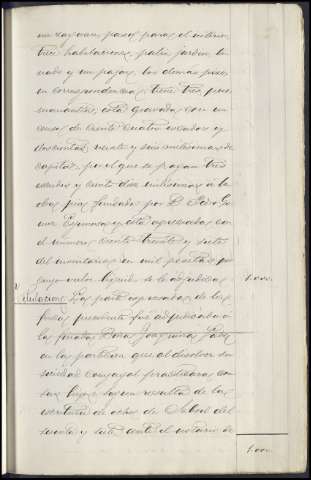 un zaguan, pasos para el interior,
tres habitaciones, patio, jardin, te-
nado y un pajar, los demas pisos
en correspondencia, tiene tres pies
manantios, está gravada con un
censo de ciento cuatro escudos y
doscientas veinte y seis milesimas de
capital, por el que se pagan tres
escudos y ciento doce milesimas a la
obra pia fundada por D. Pedro
y está apreciada con
el número ciento treinta y siete
del inventario en mil pesetas por
cuyo valor liquido se le adjudica
1.000.
Titulacion: La parte espresada de la
finca precedente fué adjudicada á
la finada Doña Joaquina
en las particion que al disolver su
sociedad conyugal practicaron con
sus hijos segun resulta de la
escritura de ocho de Abril del
sesenta y siete ante el notario de
1.000